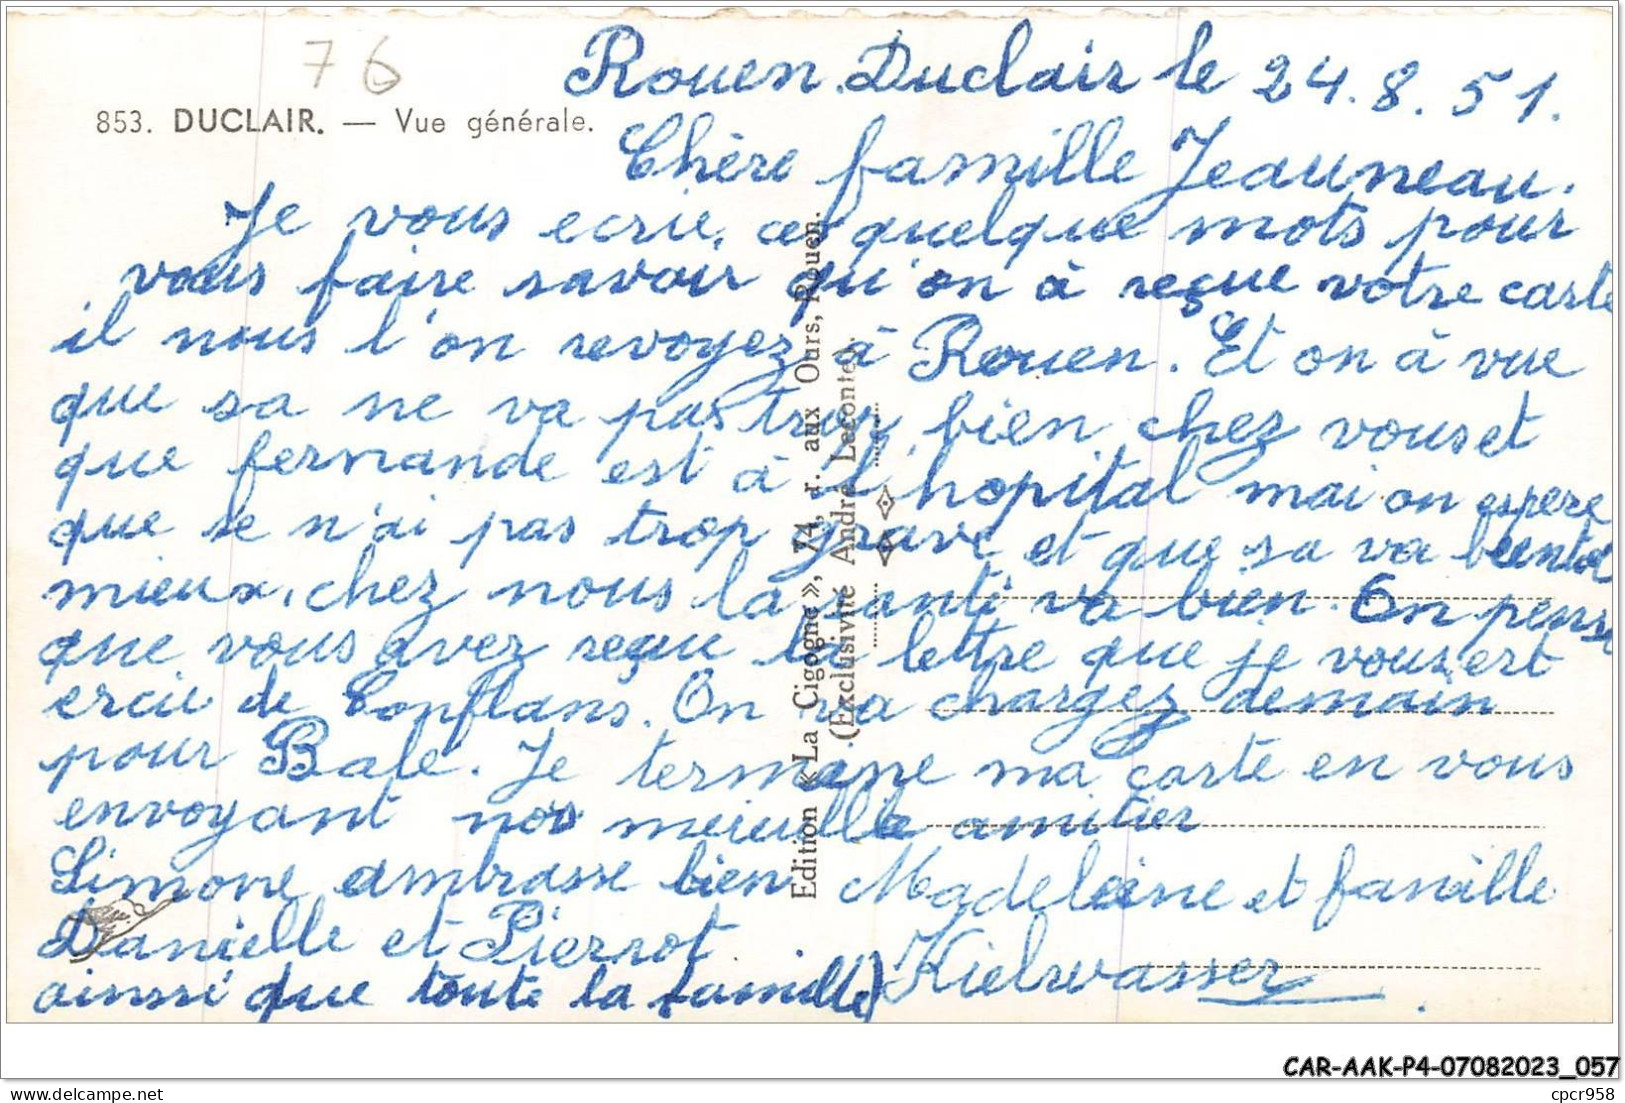 76
853. DUCLAIR. — Vue générale.
Rouen. Duclair le 24.8.51.
Chère famille Jeauneau.
Je vous ecrie, ces quelque mots pour
vous faire savoir qu'on à reçue votre carte
il nous l'on revoyez à Rouen. Et on à vue
que sa ne va pas trop bien chez vous et
que fernande est à l'hopital mai on espere
que se n'ai pas trop grave et que sa va bientot
mieux, chez nous la santé va bien. On pense
que vous avez reçue la lettre que je vous ert
ercie de Conflans. On va chargez demain
pour Bale. Je termine ma carte en vous
envoyant nos meieulle amitier
Simone ambrasse bien Madeleine et famille
Danielle et Pierrot Kielwasser
ainssi que toute la famille)
Edition «La Cigogne», 74, r. aux Ours, Rouen.
(Exclusivité André Leconte).
CAR-AAK-P4-07082023_057
cpcr958